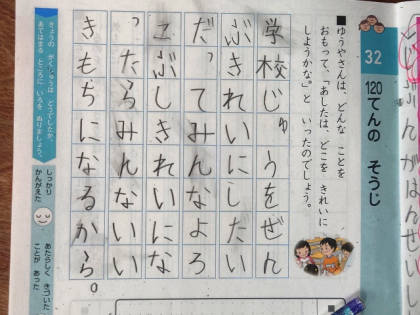 32
120てんの そうじ
■ゆうやさんは、どんな ことを
おもって、「あしたは、どこを きれいに
しようかな。」と いったのでしょう。
学校じゅうをぜん
ぶきれいにしたい
だってみんなよろ
こぶしきれいにな
ったらみんないい
きもちになるから。
きょうの がくしゅうは どうでしたか。
あてはまる ところに いろを ぬりましょう。
しっかり
かんがえた
あたらしく きづいた
ことが あった